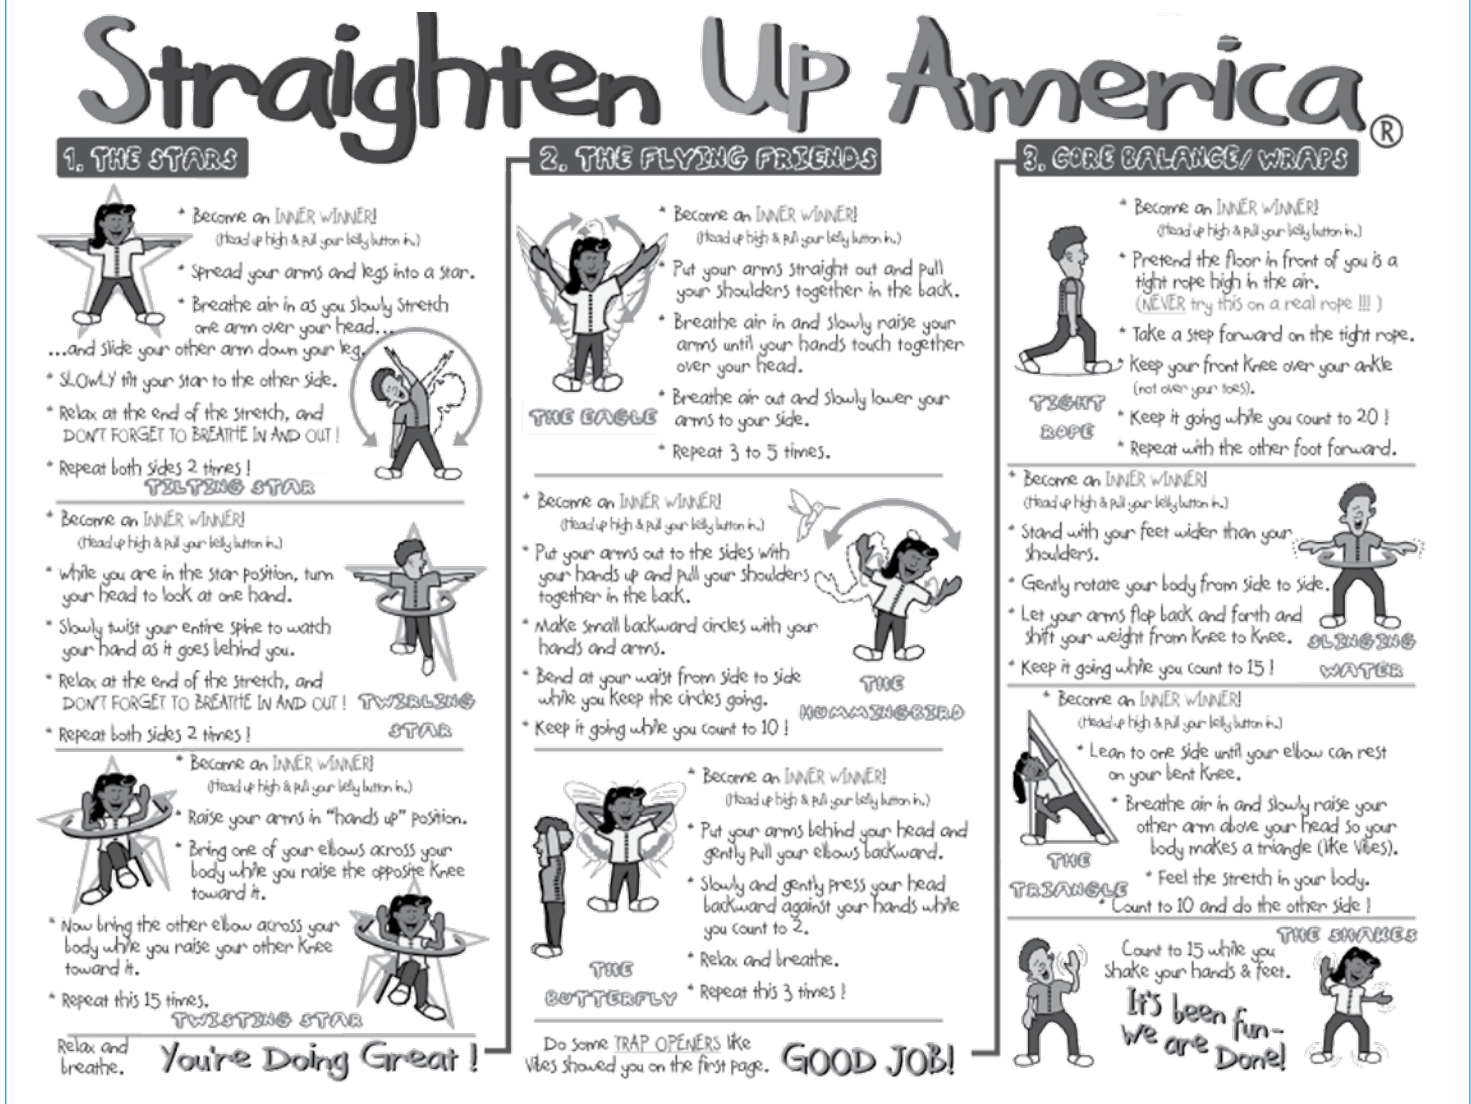 Straighten Up America®
1. THE STARS
* Become an INNER WINNER!
(Head up high & pull your belly button in.)
* Spread your arms and legs into a star.
* Breathe air in as you slowly stretch
one arm over your head...
...and slide your other arm down your leg.
* SLOWLY tilt your star to the other side.
* Relax at the end of the stretch, and
DON'T FORGET TO BREATHE IN AND OUT!
* Repeat both sides 2 times!
TILTING STAR
* Become an INNER WINNER!
(Head up high & pull your belly button in.)
* While you are in the star position, turn
your head to look at one hand.
* Slowly twist your entire spine to watch
your hand as it goes behind you.
* Relax at the end of the stretch, and
DON'T FORGET TO BREATHE IN AND OUT!
* Repeat both sides 2 times!
TWIRLING
STAR
* Become an INNER WINNER!
(Head up high & pull your belly button in.)
* Raise your arms in "hands up" position.
* Bring one of your elbows across your
body while you raise the opposite knee
toward it.
* Now bring the other elbow across your
body while you raise your other knee
toward it.
* Repeat this 15 times.
TWISTING STAR
Relax and
breathe.
You're Doing Great!
2. THE FLYING FRIENDS
* Become an INNER WINNER!
(Head up high & pull your belly button in.)
* Put your arms straight out and pull
your shoulders together in the back.
* Breathe air in and slowly raise your
arms until your hands touch together
over your head.
* Breathe air out and slowly lower your
arms to your side.
* Repeat 3 to 5 times.
THE EAGLE
* Become an INNER WINNER!
(Head up high & pull your belly button in.)
* Put your arms out to the sides with
your hands up and pull your shoulders
together in the back.
* Make small backward circles with your
hands and arms.
* Bend at your waist from side to side
while you keep the circles going.
* Keep it going while you count to 10!
THE
HUMMINGBIRD
* Become an INNER WINNER!
(Head up high & pull your belly button in.)
* Put your arms behind your head and
gently pull your elbows backward.
* Slowly and gently press your head
backward against your hands while
you count to 2.
* Relax and breathe.
* Repeat this 3 times!
THE
BUTTERFLY
Do some TRAP OPENERS like
Vibes showed you on the first page.
GOOD JOB!
3. CORE BALANCE/ WRAPS
* Become an INNER WINNER!
(Head up high & pull your belly button in.)
* Pretend the floor in front of you is a
tight rope high in the air.
(NEVER try this on a real rope!!!)
* Take a step forward on the tight rope.
* Keep your front knee over your ankle
(not over your toes).
* Keep it going while you count to 20!
* Repeat with the other foot forward.
TIGHT
ROPE
* Become an INNER WINNER!
(Head up high & pull your belly button in.)
* Stand with your feet wider than your
shoulders.
* Gently rotate your body from side to side.
* Let your arms flop back and forth and
shift your weight from knee to knee.
* Keep it going while you count to 15!
SLINGING
WATER
* Become an INNER WINNER!
(Head up high & pull your belly button in.)
* Lean to one side until your elbow can rest
on your bent knee.
* Breathe air in and slowly raise your
other arm above your head so your
body makes a triangle (like Vibes).
* Feel the stretch in your body.
* Count to 10 and do the other side!
THE
TRIANGLE
THE SHAKES
Count to 15 while you
shake your hands & feet.
It's been fun-
We are Done!